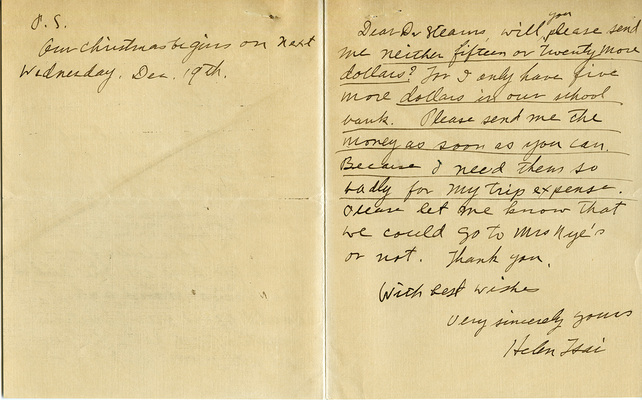 Dear Dr Stearns, will you please send
me neither fifteen or twenty more
dollars? For I only have five
more dollars in our school
bank. Please send me the
money as soon as you can.
Because I need them so
badly for my trip expense.
Please let me know that
we could go to Mrs Nye's
or not. Thank you.
With best wishes
Very sincerely yours
Helen Tsai
P.S.
Our christmas begins on next
Wednesday. Dec. 19th.